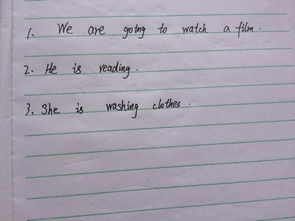 1、 We are going to watch a film.
2、 He is reading.
3、 She is washing clothes.